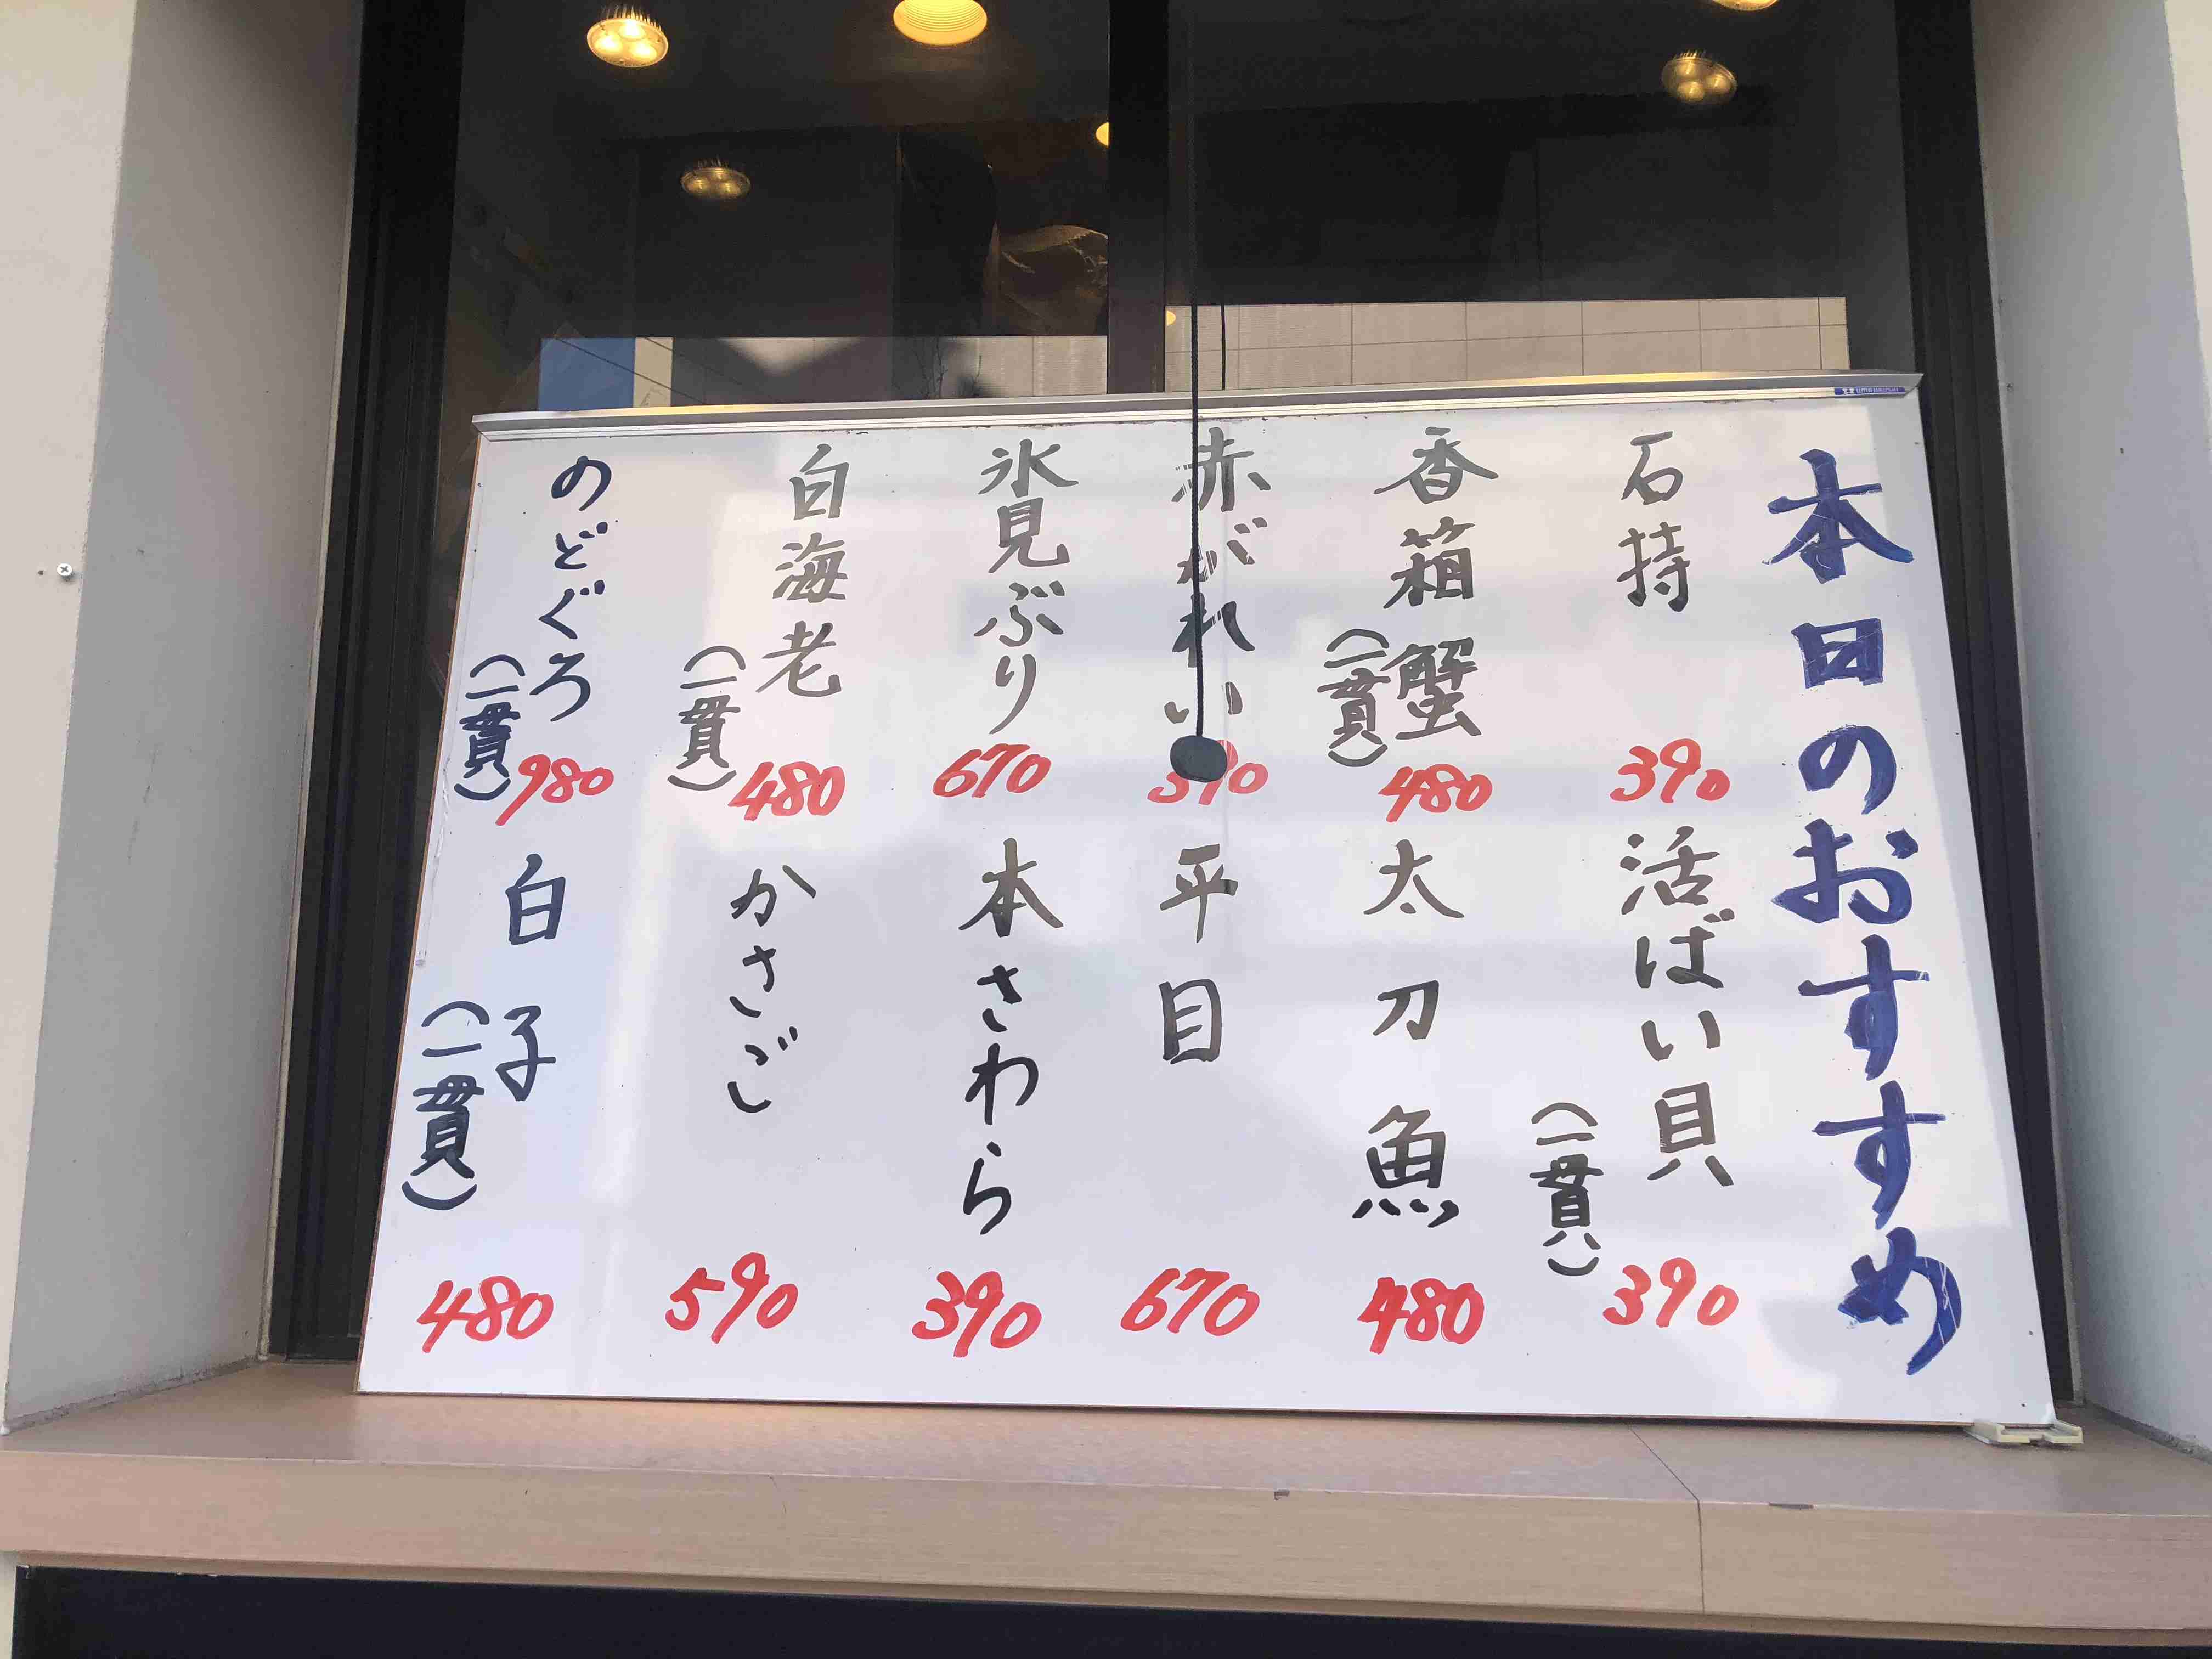 本日のおすすめ
石持
390
活ばい貝
(一貫)
390
香箱蟹
(一貫)
480
太刀魚
480
赤がれい
平目
670
氷見ぶり
670
本さわら
390
白海老
(一貫)
480
かさご
590
のどぐろ
(一貫)
980
白子
(一貫)
480